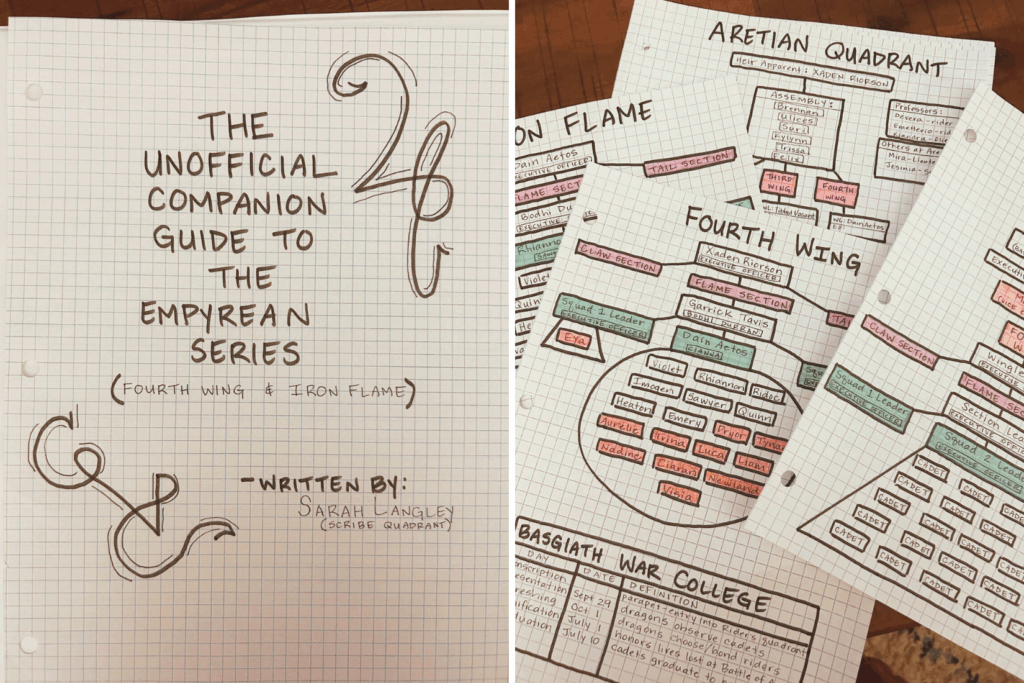 THE
UNOFFICIAL
COMPANION
GUIDE TO
THE
EMPYREAN
SERIES
(FOURTH WING & IRON FLAME)
-WRITTEN BY:
SARAH LANGLEY
(SCRIBE QUADRANT)
ARETIAN QUADRANT
Heir Apparent: XADEN RIORSON
ASSEMBLY:
Brennan
Ulices
Suri
Kylynn
Trissa
Felix
Professors:
Devera-rider
Emetterio-rid
Others at Are
Mira-Lieute
Jesinia-s
THIRD
WING
FOURTH
WING
WL: Dain Aetos
ON FLAME
Dain Aetos
EXECUTIVE OFFICER
TAIL SECTION
FLAME SECT
Bodhi Du
EXECUTIVE
Rhiannon
Violet
Quinn
FOURTH WING
Xaden Riorson
EXECUTIVE OFFICER
CLAW SECTION
FLAME SECTION
TAI
Garrick Tavis
BODHI DURRAN
Squad 1 Leader
EXECUTIVE OFFICER
Dain Aetos
CIANNA
Squ
Eya
Violet
Rhiannon
Ridoc
Imogen
Sawyer
Quinn
Heaton
Emery
Aurelie
Trina
Pryor
Tynan
Nadine
Luca
Liam
Ciaran
Newland
Visia
Executi
CLAW SECTION
Wingle
EXECUTIVE
FLAME SECT
Squad 1 Leader
EXECUTIVE OFFICER
Section Lea
EXECUTIVE OFFIC
Squad 2 Lead
EXECUTIVE OFFICER
CADET
CADET
CADET
CADET
CADET
CADET
CADET
CADET
CADET
CADET
CADET
CADET
CADET
CADET
BASGIATH WAR COLLEGE
DAY DATE DEFINITION
nscription Sept 29 parapet-entry into Riders quadrant
esentation Oct 1 dragons observe cadets
reshing July 1 dragons choose/bond riders
ification July 10 honors lives lost at Battle of A
duation cadets graduate to